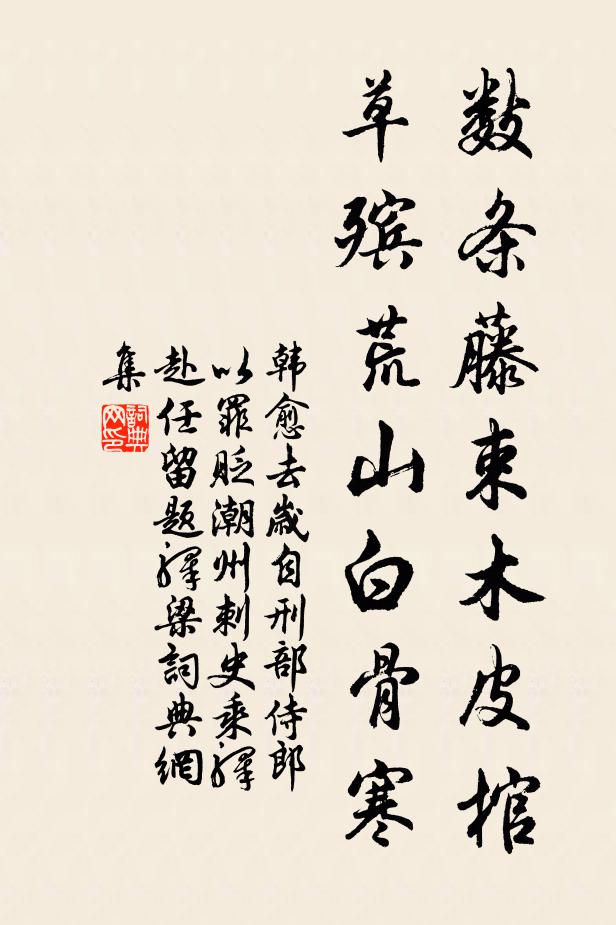 数条藤束木皮棺
草殡荒山白骨寒
韩愈去歲自刑部侍郎
以罪貶潮州刺史乘驛
赴任留题驛梁詞典網
集
詞典网印